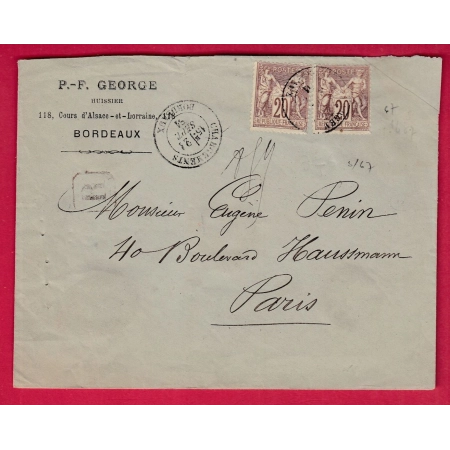 P.-F. GEORGE
HUISSIER
118, Cours d'Alsace-et-Lorraine, 118
BORDEAUX
CHARGEMENTS
BORDEAUX
20
20
Monsieur Eugène Penin
40 Boulevard Haussmann
Paris